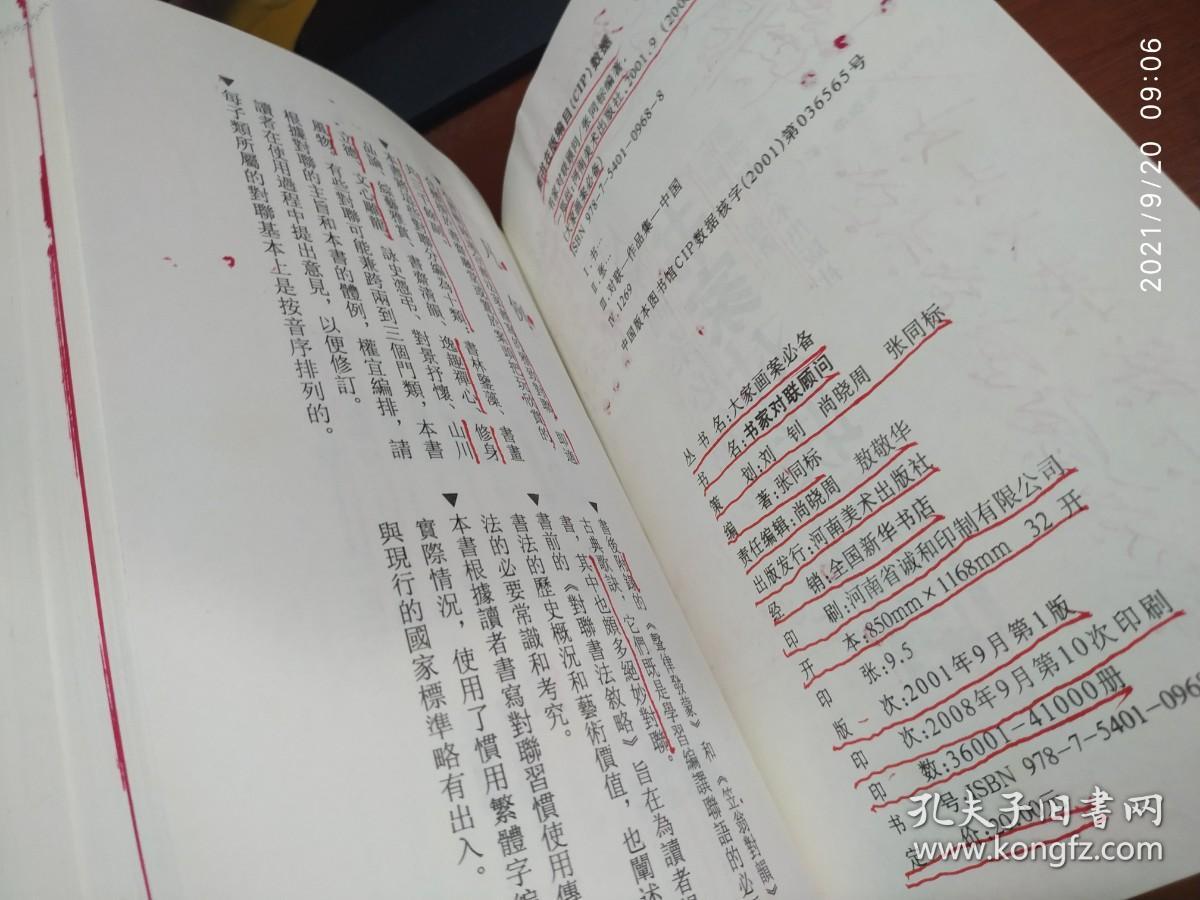 每子類所屬的對聯基本上是按音序排列的。
讀者在使用過程中提出意見，以便修訂。
根據對聯的主旨和本書的體例，權宜編排，請
風物。有些對聯可能兼跨兩到三個門類，本書
立德、文心雕龍、詠史憑弔、對景抒懷、山川
品論、綜藝雅賞、書齋清韻、逸趣禪心、修身
分編為十類：書林鑒藻、書畫
書後附錄的《聲律發蒙》和《笠翁對韻》
古典歌訣，它們既是學習編譔聯語的必
書，其中也頗多絕妙對聯。
書前的《對聯書法敘略》旨在為讀者提
書法的歷史概況和藝術價值，也闡述
法的必要常識和考究。
本書根據讀者書寫對聯習慣使用傳
實際情況，使用了慣用繁體字編
與現行的國家標準略有出入。
版編目(CIP)数据
书家对联顾问/张同标编著.
河南美术出版社,2001.9
ISBN 978-7-5401-0968-8
Ⅰ.书…
Ⅱ.张…
Ⅲ.对联—作品集—中国
Ⅳ.I269
中国版本图书馆CIP数据核字(2001)第036565号
丛 书 名:大家画案必备
书 名:书家对联顾问
策 划:刘 钊 尚晓周 张同标
编 著:张同标
责任编辑:尚晓周 敖敬华
出版发行:河南美术出版社
经 销:全国新华书店
印 刷:河南省诚和印制有限公司
开 本:850mm×1168mm 32开
印 张:9.5
版 次:2001年9月第1版
印 次:2008年9月第10次印刷
印 数:36001-41000册
书 号:ISBN 978-7-5401-0968
定 价:20.00元
2021/9/20 09:06
孔夫子旧书网
www.kongfz.com